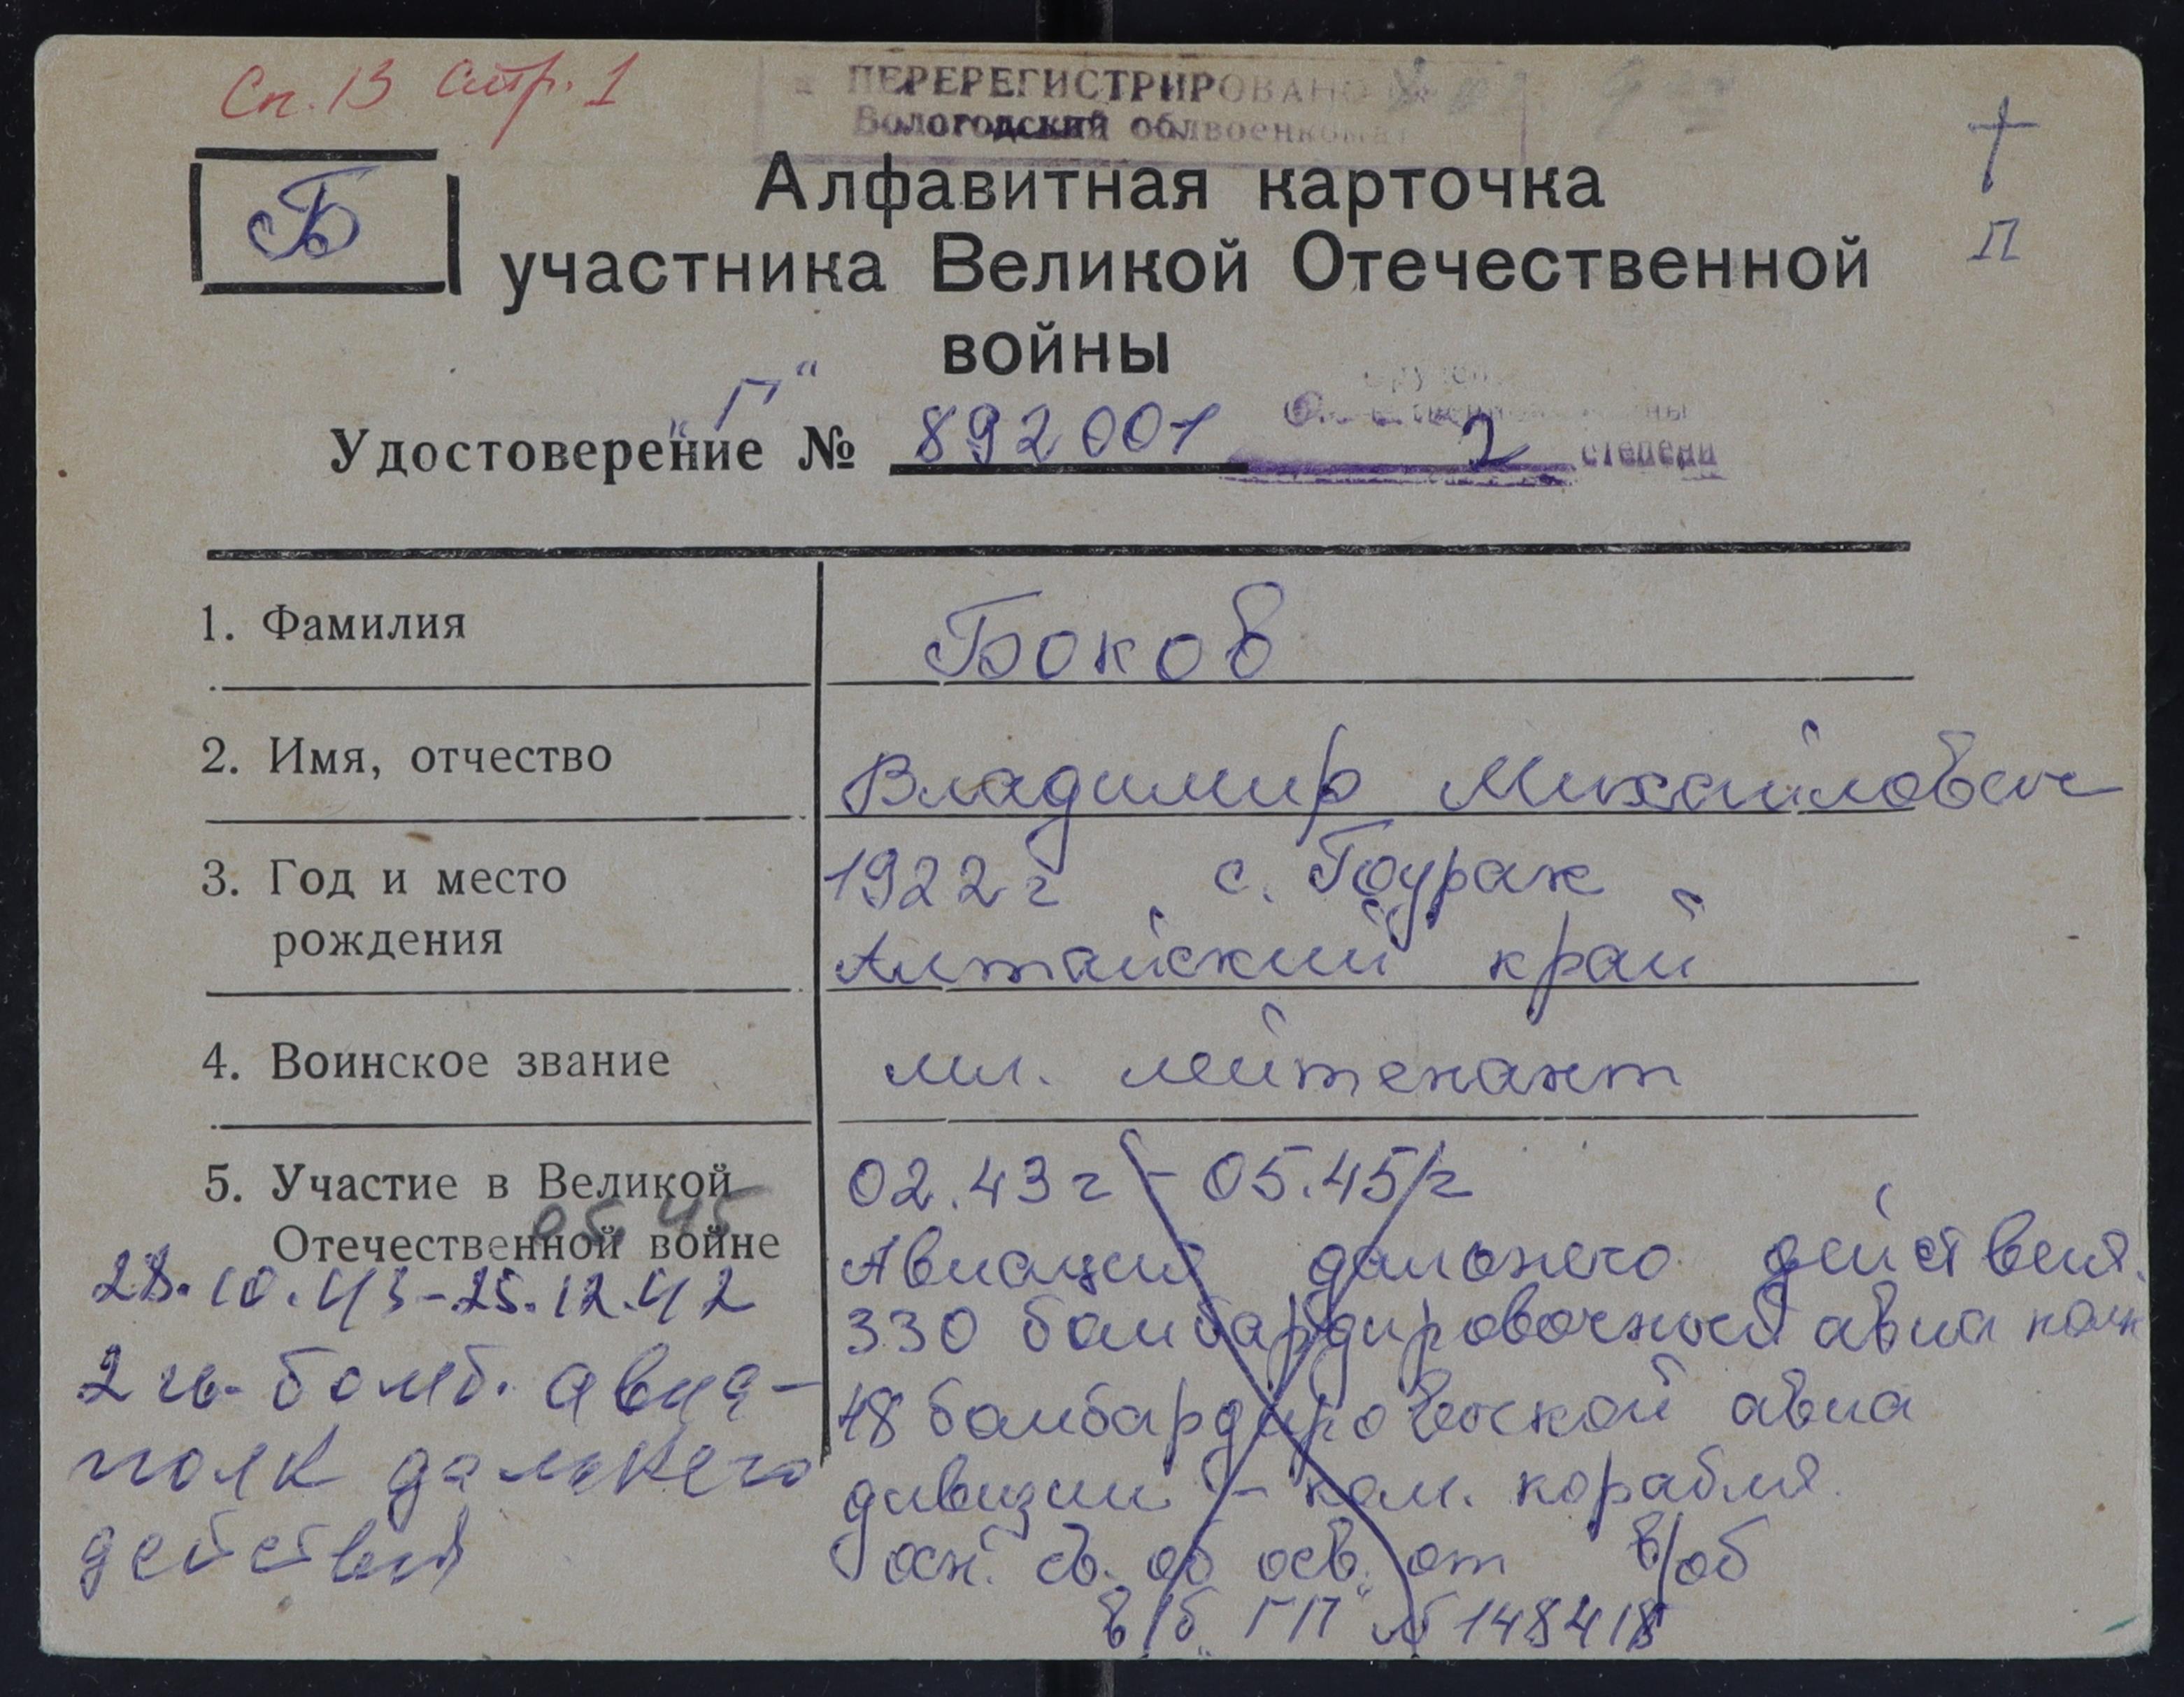 Сп. 13 стр. 1
ПЕРЕРЕГИСТРИРОВАНО
Вологодский облвоенкомат
Б
†
П
Алфавитная карточка
участника Великой Отечественной
войны
„Г“
Удостоверение № 892001 2 степени
1. Фамилия
Боков
2. Имя, отчество
Владимир Михайлович
3. Год и место
рождения
1922 г с. Тоурак
Алтайский край
4. Воинское звание
мл. лейтенант
5. Участие в Великой
Отечественной войне
05.45
28.10.43-25.12.42
2 гв. бомб. авиа-
полк дальнего
действия
02.43 г - 05.45 г
Авиация дальнего действия.
330 бомбардировочный авиа полк
48 бомбардировоской авиа
дивизии - ком. корабля
осн. св. об осв. от в/об
в/б „ГП“ № 148418